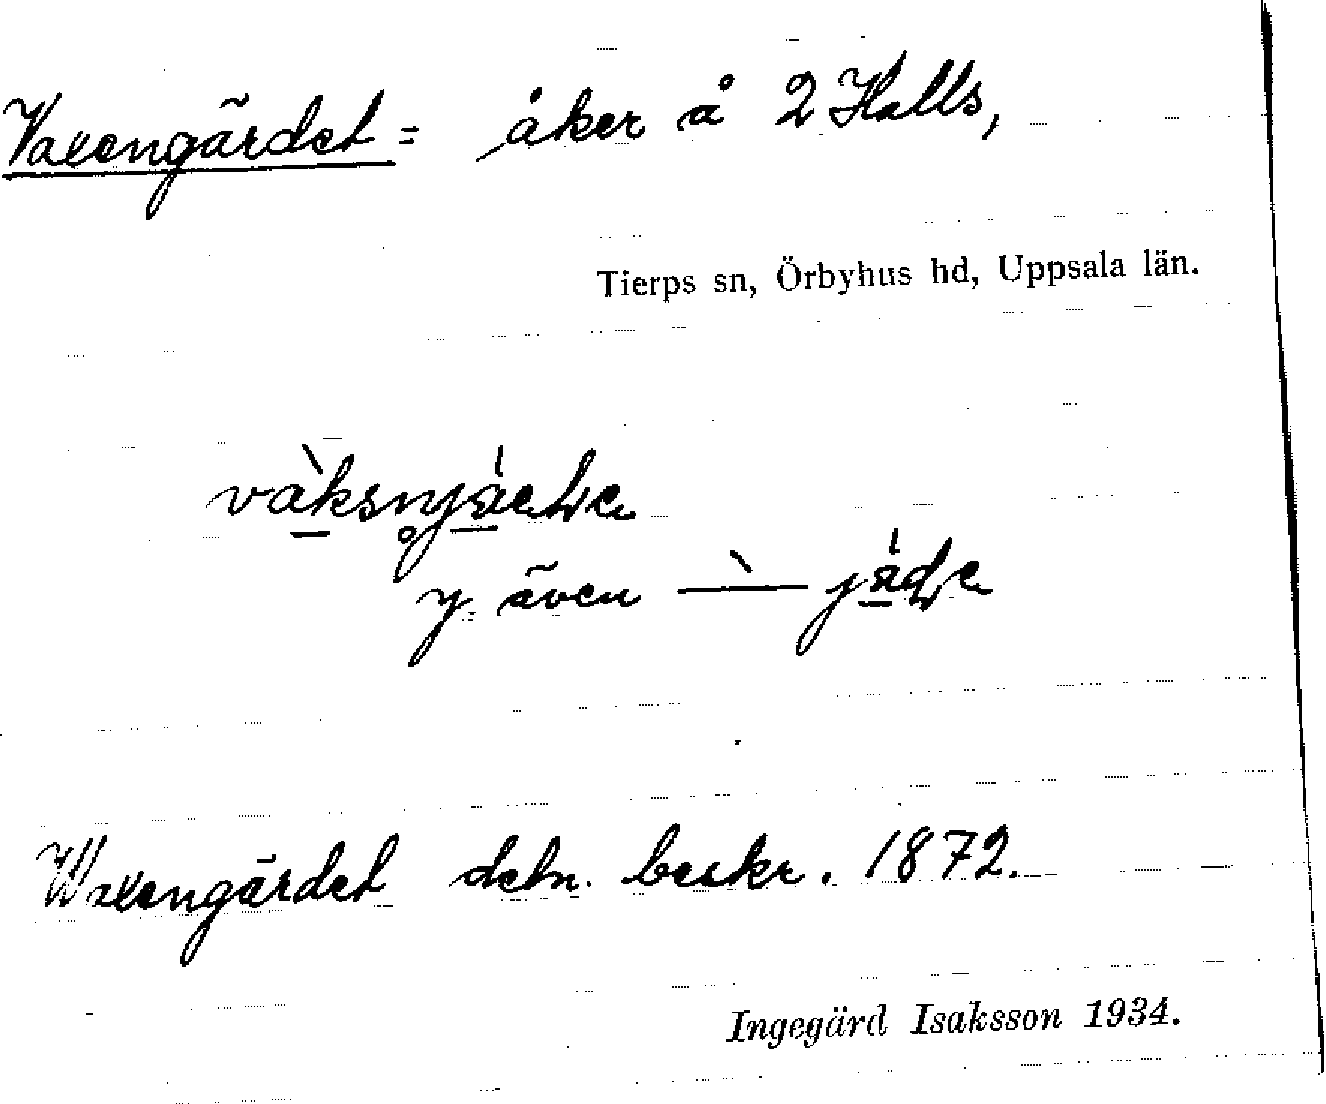 Vaxengärdet = åker å 2 Halls,
Tierps sn, Örbyhus hd, Uppsala län.
även
Waxengärdet deln. beskr. 1872.
Ingegärd Isaksson 1934.